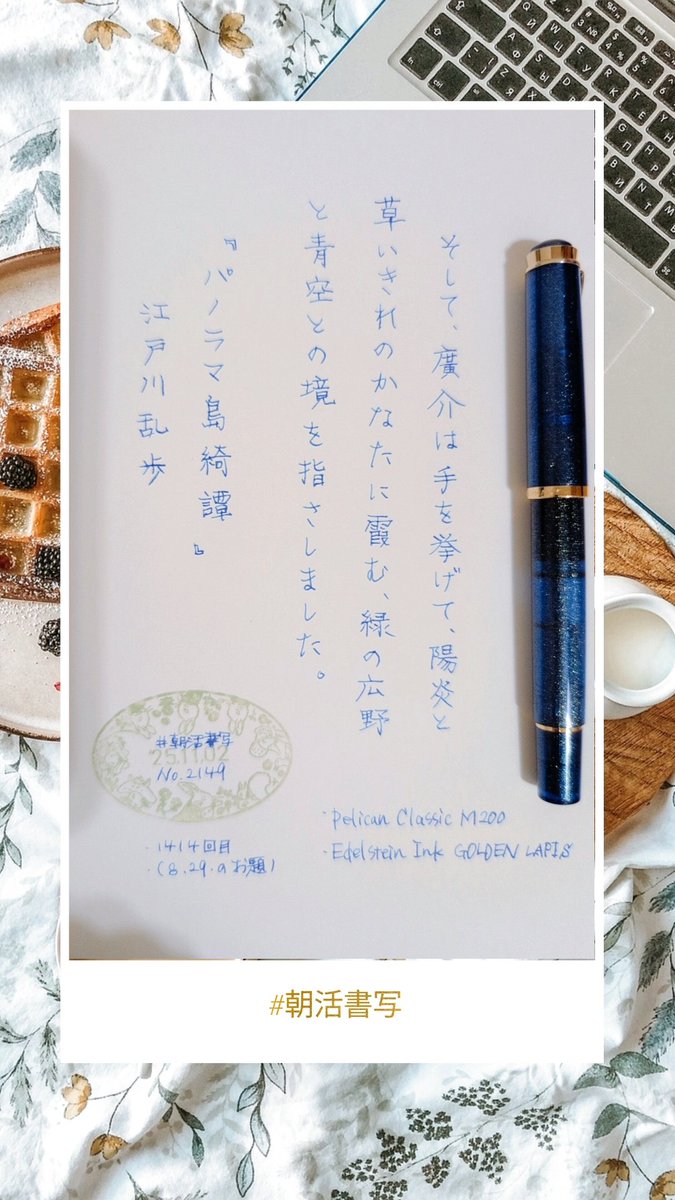 そして、廣介は手を挙げて、陽炎と
草いきれのかなたに霞む、緑の広野
と青空との境を指さしました。
『パノラマ島綺譚』
江戸川乱歩
#朝活書写
25.11.02
No.2149
・1414回目
・(8.29.のお題)
・Pelican Classic M200
・Edelstein Ink GOLDEN LAPIS
#朝活書写